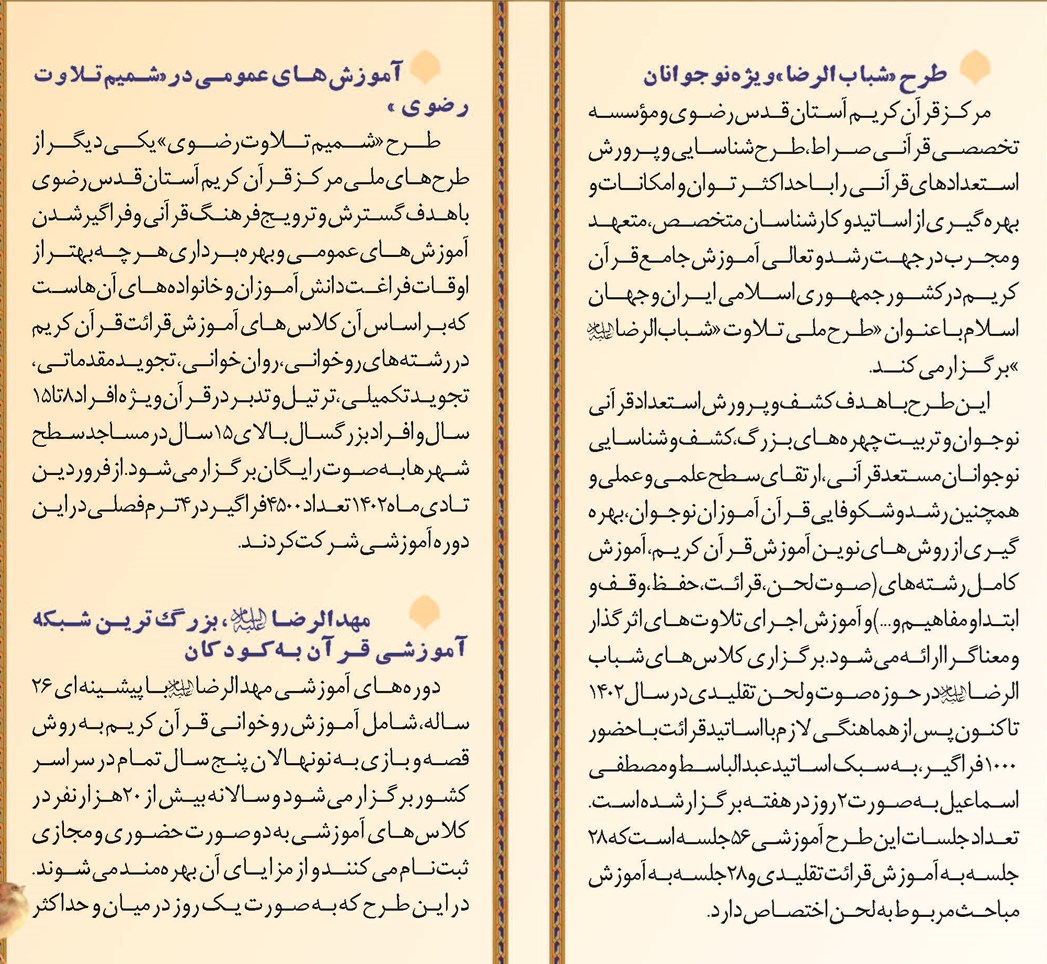 طرح «شباب الرضا» ویژه نوجوانان
مرکز قرآن کریم آستان قدس رضوی و مؤسسه
تخصصی قرآنی صراط، طرح شناسایی و پرورش
استعدادهای قرآنی را با حداکثر توان و امکانات و
بهره گیری از اساتید و کارشناسان متخصص، متعهد
و مجرب در جهت رشد و تعالی آموزش جامع قرآن
کریم در کشور جمهوری اسلامی ایران و جهان
اسلام با عنوان «طرح ملی تلاوت «شباب الرضا علیه‌السلام
» برگزار می کند.
این طرح با هدف کشف و پرورش استعداد قرآنی
نوجوان و تربیت چهره های بزرگ، کشف و شناسایی
نوجوانان مستعد قرآنی، ارتقای سطح علمی و عملی و
همچنین رشد و شکوفایی قرآن آموزان نوجوان، بهره
گیری از روش های نوین آموزش قرآن کریم، آموزش
کامل رشته های (صوت لحن، قرائت، حفظ، وقف و
ابتدا و مفاهیم و...) و آموزش اجرای تلاوت های اثر گذار
و معناگرا ارائه می شود. برگزاری کلاس های شباب
الرضا علیه‌السلام در حوزه صوت و لحن تقلیدی در سال ۱۴۰۲
تاکنون پس از هماهنگی لازم با اساتید قرائت با حضور
۱۰۰۰ فراگیر، به سبک اساتید عبدالباسط و مصطفی
اسماعیل به صورت ۲ روز در هفته برگزار شده است.
تعداد جلسات این طرح آموزشی ۵۶ جلسه است که ۲۸
جلسه به آموزش قرائت تقلیدی و ۲۸ جلسه به آموزش
مباحث مربوط به لحن اختصاص دارد.
آموزش های عمومی در «شمیم تلاوت
رضوی »
طرح «شمیم تلاوت رضوی» یکی دیگر از
طرح های ملی مرکز قرآن کریم آستان قدس رضوی
با هدف گسترش و ترویج فرهنگ قرآنی و فراگیر شدن
آموزش های عمومی و بهره برداری هر چه بهتر از
اوقات فراغت دانش آموزان و خانواده های آن هاست
که بر اساس آن کلاس های آموزش قرائت قرآن کریم
در رشته های روخوانی، روان خوانی، تجوید مقدماتی،
تجوید تکمیلی، ترتیل و تدبر در قرآن ویژه افراد ۸ تا ۱۵
سال و افراد بزرگسال بالای ۱۵ سال در مساجد سطح
شهرها به صوت رایگان برگزار می شود. از فروردین
تا دی ماه ۱۴۰۲ تعداد ۴۵۰۰ فراگیر در ۴ ترم فصلی در این
دوره آموزشی شرکت کردند.
مهدالرضا علیه‌السلام، بزرگ ترین شبکه
آموزشی قرآن به کودکان
دوره های آموزشی مهدالرضا علیه‌السلام با پیشینه ای ۲۶
ساله، شامل آموزش روخوانی قرآن کریم به روش
قصه و بازی به نونهالان پنج سال تمام در سراسر
کشور برگزار می شود و سالانه بیش از ۲۰ هزار نفر در
کلاس های آموزشی به دو صورت حضوری و مجازی
ثبت نام می کنند و از مزایای آن بهره مند می شوند.
در این طرح که به صورت یک روز در میان و حداکثر